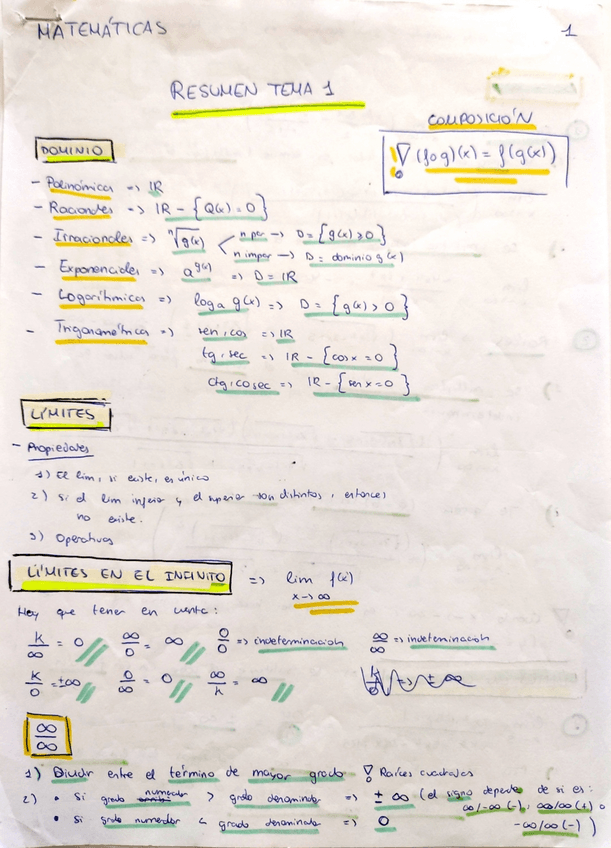 MATEMÁTICAS 1
RESUMEN TEMA 1
COMPOSICIÓN
(fog)(x) = f(g(x))
DOMINIO
- Polinómica => IR
- Racionales -> IR - {Q(x) = 0}
- Irracionales => ⁿ√g(x) n.par -> D = {g(x) ≥ 0}
n impar -> D = dominio g(x)
- Exponenciales => a^g(x) => D = IR
- Logarítmicas => log a g(x) => D = {g(x) > 0}
- Trigonométricas => sen, cos => IR
tg, sec => IR - {cos x = 0}
ctg, cosec => IR - {sen x = 0}
LÍMITES
- Propiedades
1) El lim, si existe, es único
2) Si el lim inferior y el superior son distintos, entonces
no existe.
3) Operativas
LÍMITES EN EL INFINITO => lim f(x)
x -> ∞
Hay que tener en cuenta:
k/∞ = 0 ∞/0 = ∞ 0/0 => indeterminación ∞/∞ => indeterminación
k/0 = ±∞ 0/∞ = 0 ∞/k = ∞
∞/∞
1) Dividir entre el término de mayor grado Raíces cuadradas
2) • Si grado numerador > grado denominador => ± ∞ (el signo depende de si es:
∞/-∞ (-), ∞/∞ (+) o
• Si grado numerador < grado denominador => 0 -∞/∞ (-))